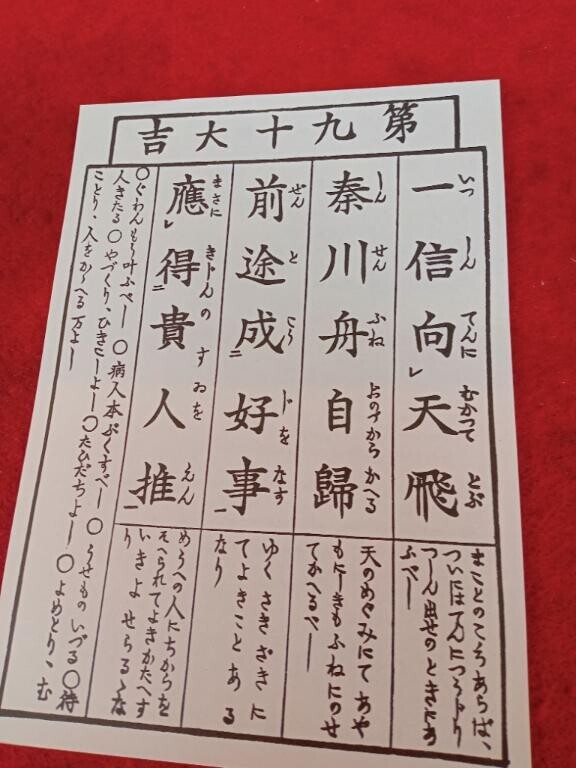 第九十大吉
一信向レ天飛
いつしんてんにむかつてとぶ
まことのこゝろあらば、
ついにはてんにつうじり
つしん出世のときにあ
ふべし
秦川舟自歸
しんせんふねおのづからかへる
天のめぐみにてあや
もにしきもふねにのせ
てかへるべし
前途成二好事一
ぜんとこうじをなす
ゆくさきざきに
てよきことある
なり
應レ得二貴人推一
まさにきじんのすゐをえん
めうへの人にちからを
そへられてよきかたへす
いきよせらるゝな
り
○ぐわんもう叶ふべし○病人本ぷくすべし○うせものいづる○待
人きたる○やづくり、ひきこしよし○たひだちよし○よめとり、む
ことり、人をかゝへる万よし